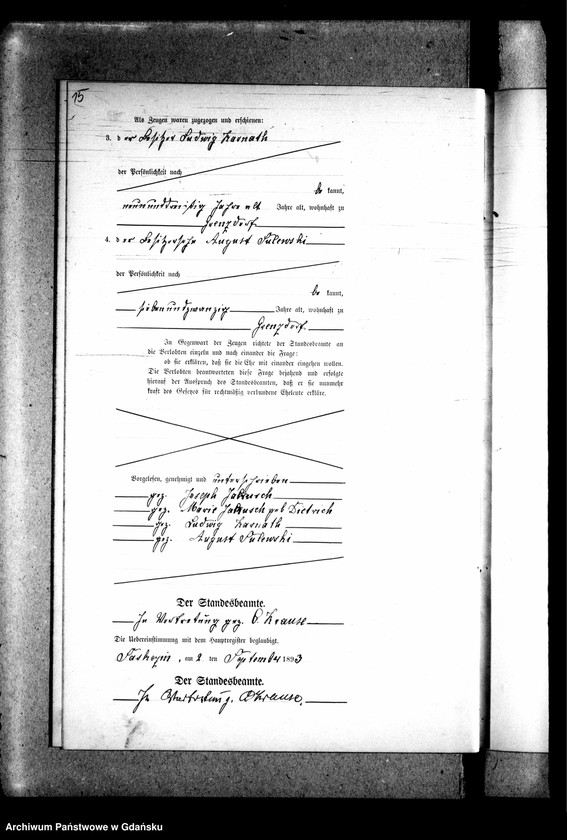 15
Als Zeugen waren zugezogen und erschienen:
3. der Besitzer Ludwig Karnath
der Persönlichkeit nach
be kannt,
neununddreißig Jahre alt Jahre alt, wohnhaft zu
Grenzdorf
4. der Besitzersohn August Sulewski
der Persönlichkeit nach
be kannt,
siebenundzwanzig Jahre alt, wohnhaft zu
Grenzdorf.
In Gegenwart der Zeugen richtete der Standesbeamte an
die Verlobten einzeln und nach einander die Frage:
ob sie erklären, daß sie die Ehe mit einander eingehen wollen.
Die Verlobten beantworteten diese Frage bejahend und erfolgte
hierauf der Ausspruch des Standesbeamten, daß er sie nunmehr
kraft des Gesetzes für rechtmäßig verbundene Eheleute erkläre.
Vorgelesen, genehmigt und unterschrieben
gez. Joseph
gez. Marie geb Dietrich
gez. Ludwig Karnath
gez. August Sulewski
Der Standesbeamte.
In Vertretung gez. Krause
Die Uebereinstimmung mit dem Hauptregister beglaubigt.
am 2 ten September 1893
Der Standesbeamte.
In Vertretung. Krause.
Archiwum Państwowe w Gdańsku